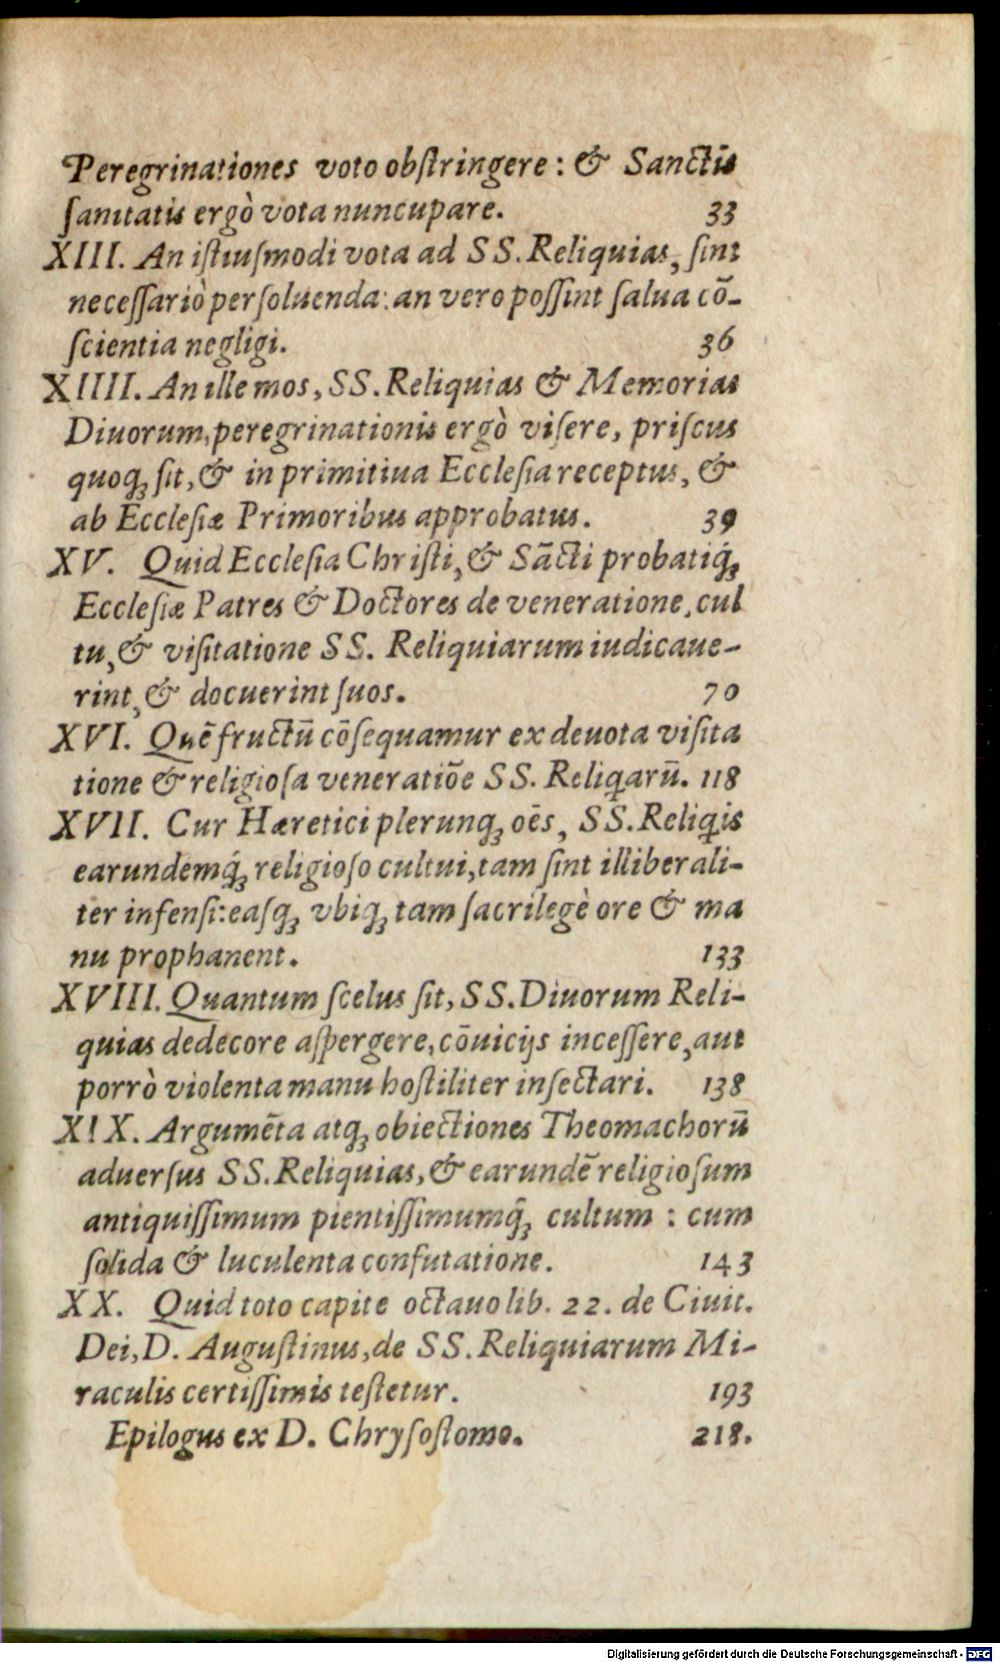 Peregrinationes voto obſtringere: & Sanctis
ſanitatis ergò vota nuncupare. 33
XIII. An iſtiuſmodi vota ad SS. Reliquias, ſint
neceſſariò perſoluenda: an vero poſſint ſalua cō-
ſcientia negligi. 36
XIIII. An ille mos, SS. Reliquias & Memorias
Diuorum, peregrinationis ergò viſere, priſcus
quoq; ſit, & in primitiua Eccleſia receptus, &
ab Eccleſiæ Primoribus approbatus. 39
XV. Quid Eccleſia Chriſti, & Sācti probatiq́;
Eccleſiæ Patres & Doctores de veneratione, cul
tu, & viſitatione SS. Reliquiarum iudicaue-
rint, & docuerint ſuos. 70
XVI. Quē fructū cōſequamur ex deuota viſita
tione & religioſa veneratiōe SS. Reliq̃arū. 118
XVII. Cur Hæretici plerunq; oēs, SS. Reliq̃is
earundemq́; religioſo cultui, tam ſint illiberali-
ter infenſi: eaſq; vbiq; tam ſacrilegè ore & ma
nu prophanent. 133
XVIII. Quantum ſcelus ſit, SS. Diuorum Reli-
quias dedecore aſpergere, cōuicijs inceſſere, aut
porrò violenta manu hoſtiliter inſectari. 138
XIX. Argumēta atq; obiectiones Theomachorū
aduerſus SS. Reliquias, & earundē religioſum
antiquiſſimum pientiſſimumq́; cultum: cum
ſolida & luculenta confutatione. 143
XX. Quid toto capite octauo lib. 22. de Ciuit.
Dei, D. Auguſtinus, de SS. Reliquiarum Mi-
raculis certiſſimis teſtetur. 193
Epilogus ex D. Chryſoſtomo. 218.
Digitalisierung gefördert durch die Deutsche Forschungsgemeinschaft - DFG